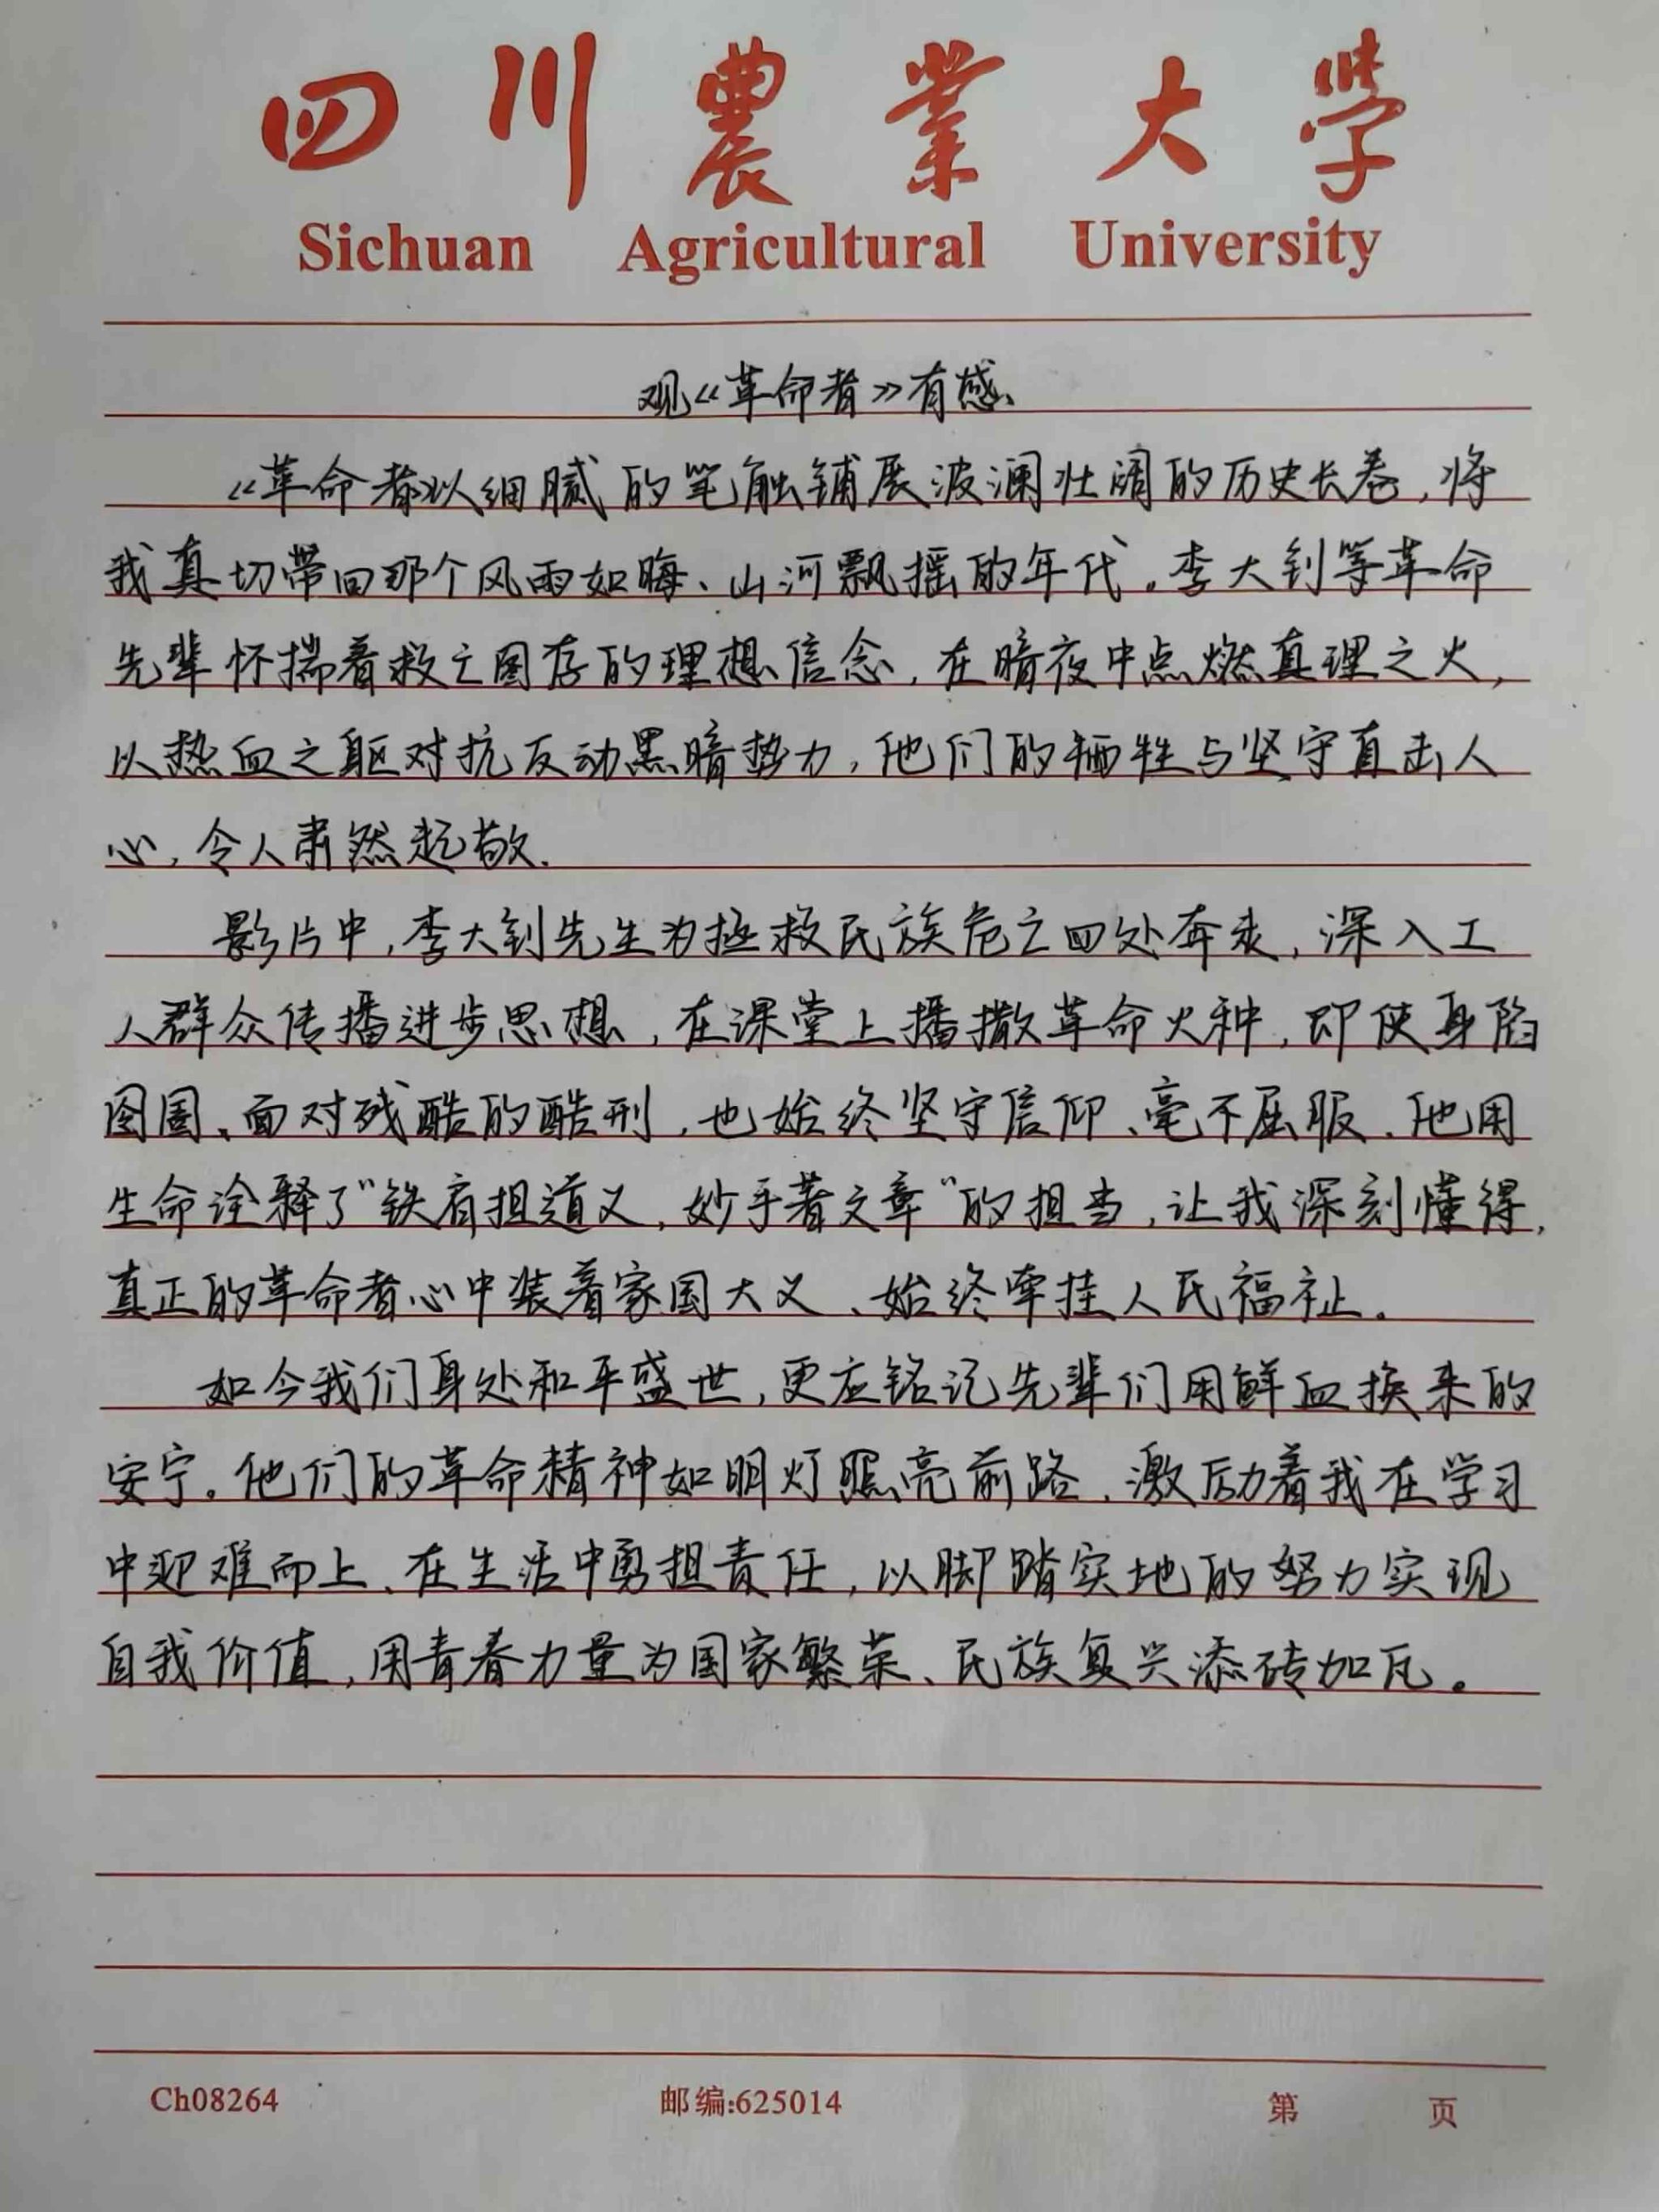 四川農業大学
Sichuan Agricultural University
观《革命者》有感
《革命者》以细腻的笔触铺展波澜壮阔的历史长卷,将
我真切带回那个风雨如晦、山河飘摇的年代。李大钊等革命
先辈怀揣着救亡图存的理想信念,在暗夜中点燃真理之火,
以热血之躯对抗反动黑暗势力,他们的牺牲与坚守直击人
心,令人肃然起敬.
影片中,李大钊先生为拯救民族危亡四处奔走,深入工
人群众传播进步思想,在课堂上播撒革命火种,即使身陷
囹圄、面对残酷的酷刑,也始终坚守信仰、毫不屈服.他用
生命诠释了“铁肩担道义,妙手著文章”的担当,让我深刻懂得,
真正的革命者心中装着家国大义、始终牵挂人民福祉。
如今我们身处和平盛世,更应铭记先辈们用鲜血换来的
安宁。他们的革命精神如明灯照亮前路,激励着我在学习
中迎难而上、在生活中勇担责任,以脚踏实地的努力实现
自我价值,用青春力量为国家繁荣、民族复兴添砖加瓦。
Ch08264 邮编:625014 第 页